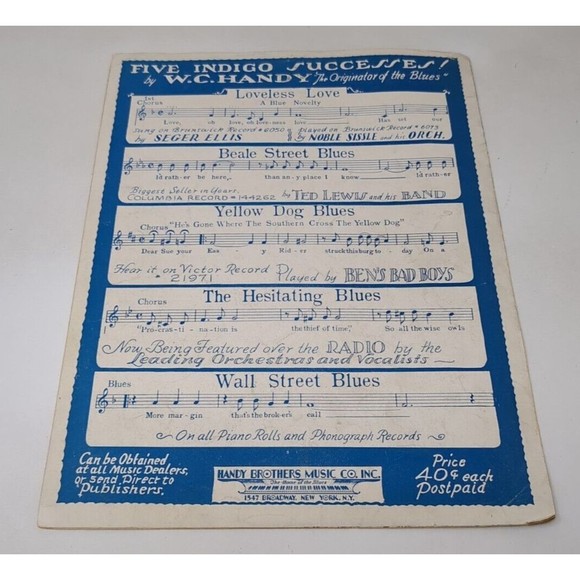 FIVE INDIGO SUCCESSES!
by W.C. HANDY "The Originator of the Blues"
Loveless Love
1st. Chorus
A Blue Novelty
Love, oh love, oh love-less love Has set our
Sung on Brunswick Record Played on Brunswick Record
by SEGER ELLIS by NOBLE SISSLE and his ORCH.
Beale Street Blues
I'd rath-er be here, than an-y place I know I'd rath-er
Biggest Seller in Years.
COLUMBIA RECORD by TED LEWIS and his BAND
Yellow Dog Blues
Chorus "He's Gone Where The Southern Cross The Yellow Dog"
Dear Sue your Eas- y Rid- er struck this burg to- day On a
Hear it on Victor Record
21971 Played by BEN'S BAD BOYS
The Hesitating Blues
Chorus
"Pro-cras-ti- na-tion is the thief of time," So all the wise owls
Now Being Featured over the RADIO by the
Leading Orchestras and Vocalists
Wall Street Blues
Blues
More mar-gin that's the brok-er's call
On all Piano Rolls and Phonograph Records
Can be Obtained
at all Music Dealers,
or send Direct to
Publishers.
HANDY BROTHERS MUSIC CO. INC.
The Home of the Blues
1547 BROADWAY, NEW YORK, N.Y.
Price
40¢ each
Postpaid